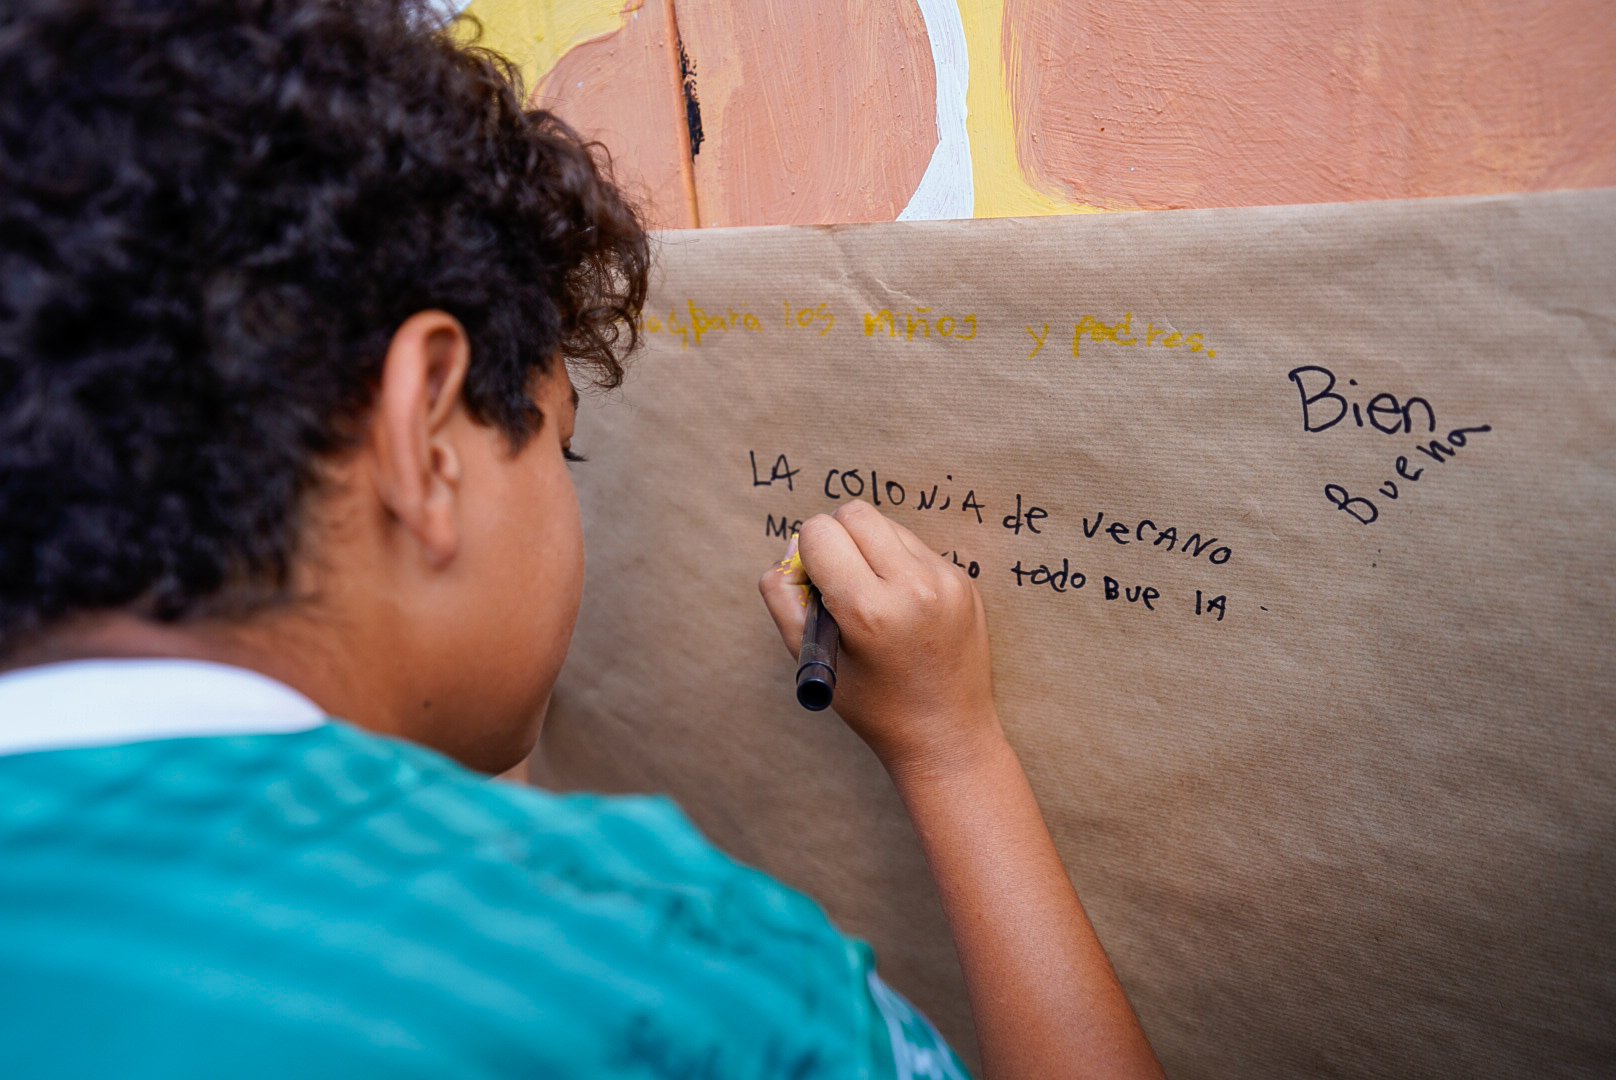 para los niños y padres.
Bien
Buena
LA coloNiA de verANo
todo Bue lA